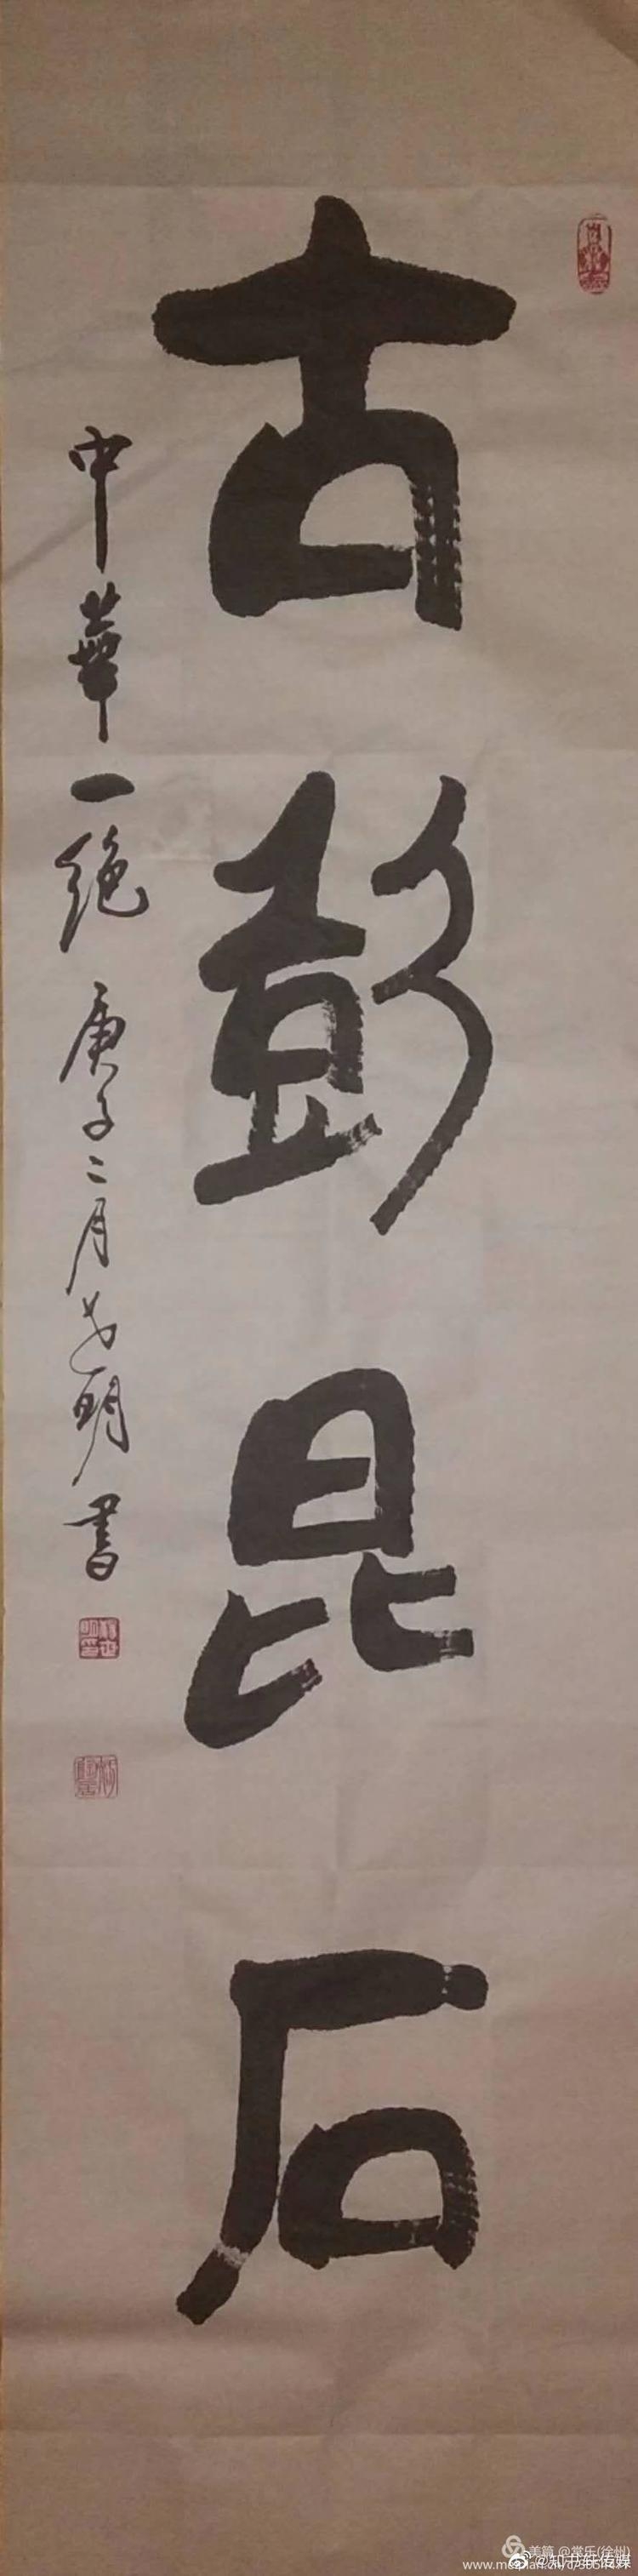 古彭昆石
中華一绝 庚子二月 明書
美篇 @常乐(徐州)
@知书轩传媒